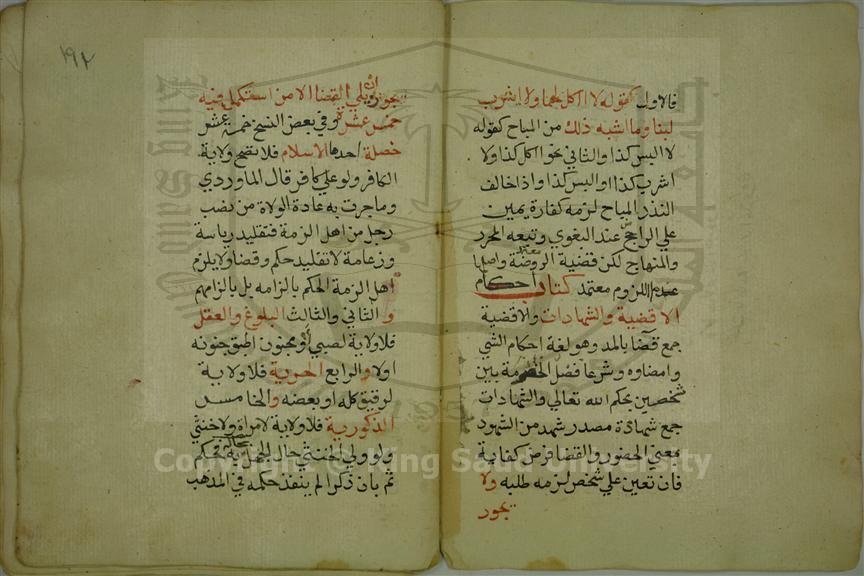 فالاول كقوله لا اكل لحما ولا اشرب
لبنا وما اشبه ذلك من المباح كقوله
لا البس كذا والثاني نحو اكل كذا ولا
اشرب كذا او البس كذا واذا خالف
النذر المباح لزمه كفارة يمين
علي الراجح عند البغوي وتبعه المحرر
والمنهاج لكن قضية الروضة واصلها
عدم اللزوم معتمد كتاب احكام
الاقضية والشهادات والاقضية
جمع قضا بالمد وهو لغة احكام الشي
وامضاوه وشرعا فصل الخصومة بين
شخصين بحكم الله تعالي والشهادات
جمع شهادة مصدر شهد من الشهود
بمعني الحضور والقضا فرض كفاية
فان تعين علي شخص لزمه طلبه ولا
يجوز
١٩٢
يجوز ان يلي القضا الا من استكمل فيه
خمس عشرة وفي بعض النسخ خمسة عشر
خصلة احدها الاسلام فلا تصح ولاية
الكافر ولو علي كافر قال الماوردي
وما جرت به عادة الولاة من نصب
رجل من اهل الزمة فتقليد رياسة
وزعامة لا تقليد حكم وقضا ولا يلزم
اهل الزمة الحكم بالزامه بل بالزامهم
والثاني والثالث البلوغ والعقل
فلا ولاية لصبي او مجنون اطبق جنونه
اولا والرابع الحرية فلا ولاية
لرقيق كله او بعضه والخامس
الذكورية فلا ولاية لامراة ولا خنثي
ولو ولي الخنثي حال الجهل فحكم
ثم بان ذكرا لم ينفذ حكمه في المذهب
Copyright © King Saud University